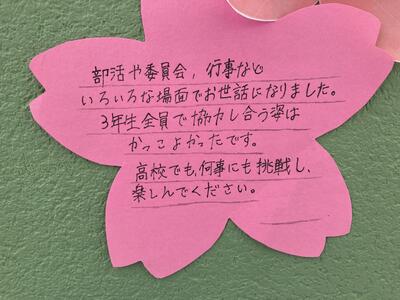 部活や委員会、行事など
いろいろな場面でお世話になりました。
3年生全員で協力し合う姿は
かっこよかったです。
高校でも、何事にも挑戦し、
楽しんでください。